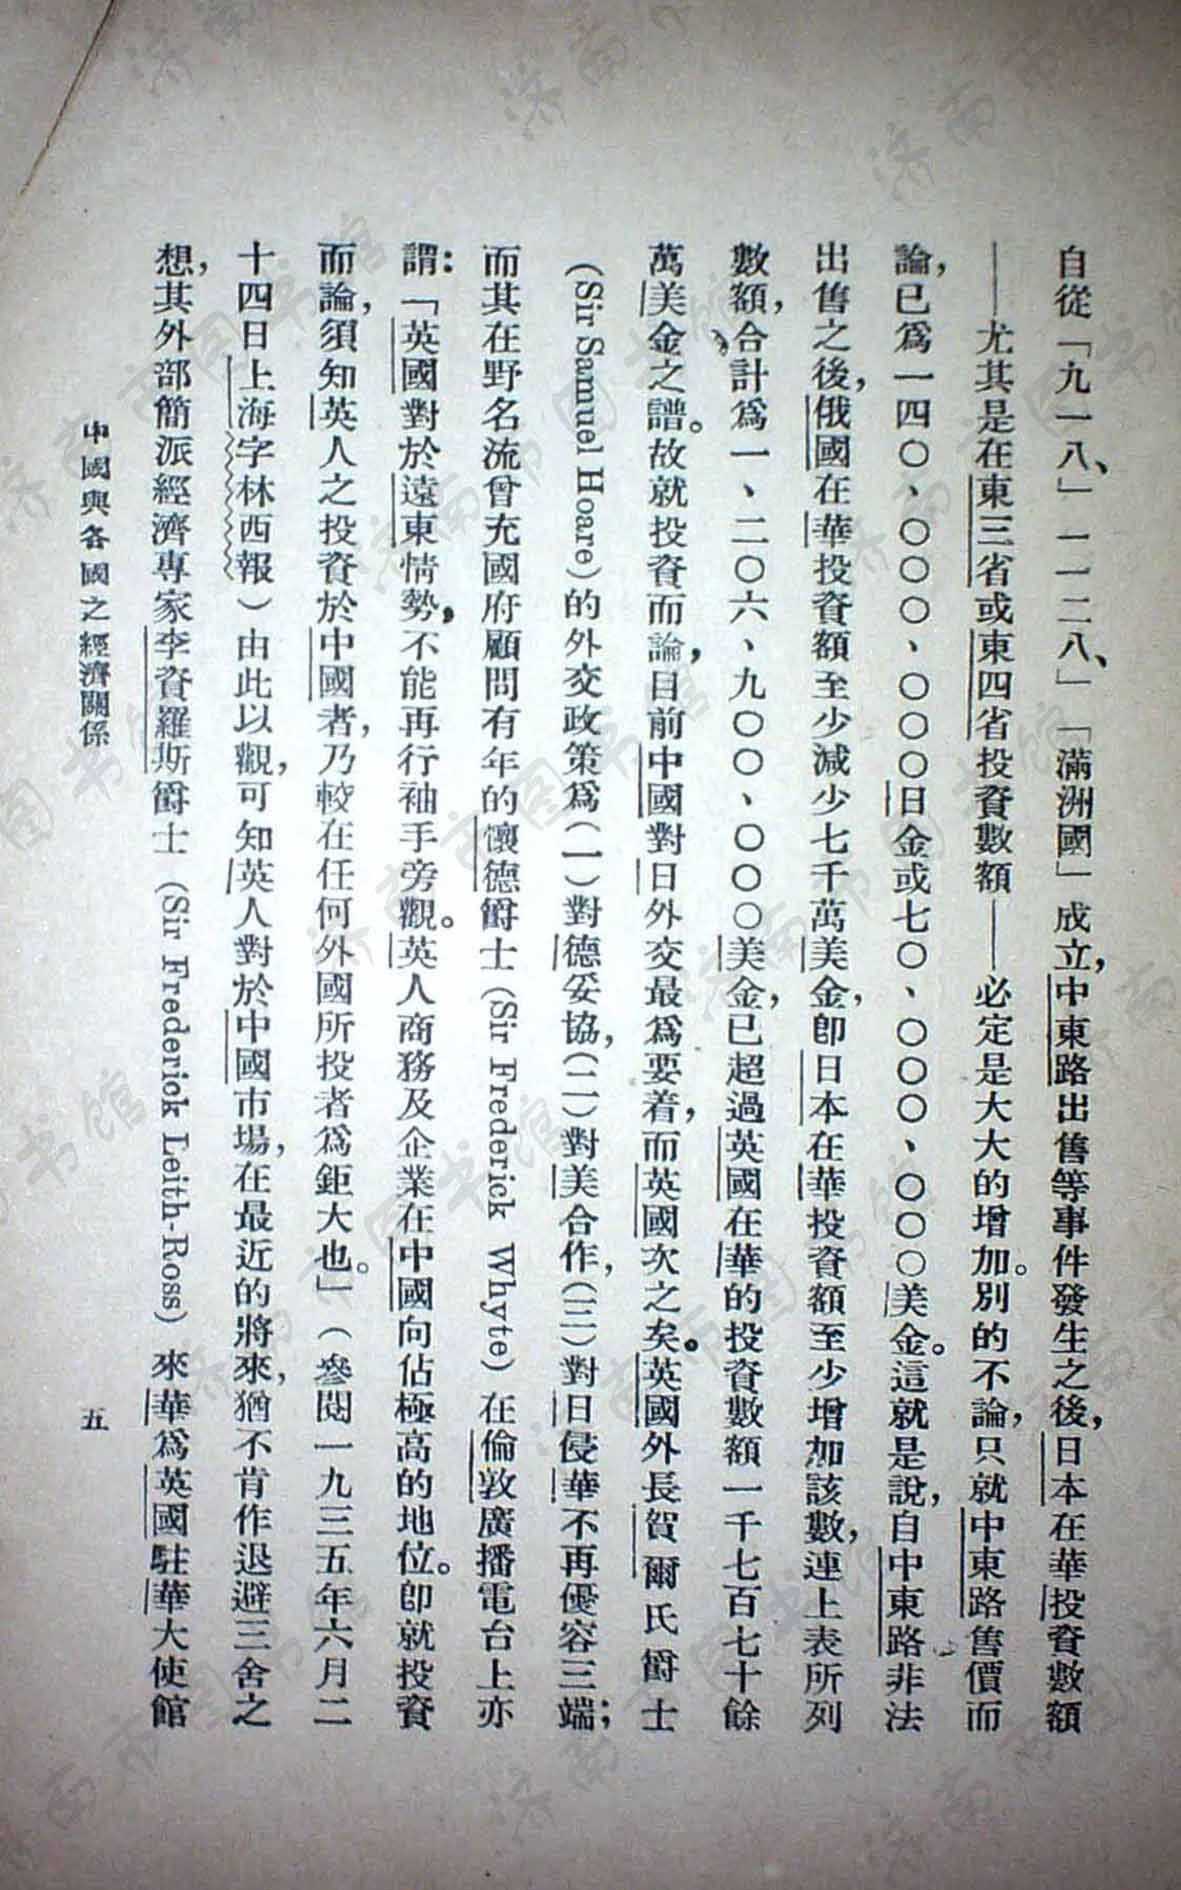 自從「九一八、」「一二八、」「滿洲國」成立，中東路出售等事件發生之後，日本在華投資數額
——尤其是在東三省或東四省投資數額——必定是大大的增加。別的不論，只就中東路售價而
論，已爲一四〇、〇〇〇、〇〇〇日金或七〇、〇〇〇、〇〇〇美金。這就是說，自中東路非法
出售之後，俄國在華投資額至少減少七千萬美金，卽日本在華投資額至少增加該數，連上表所列
數額，合計爲一、二〇六、九〇〇、〇〇〇美金，已超過英國在華的投資數額一千七百七十餘
萬美金之譜。故就投資而論，目前中國對日外交最爲要着，而英國次之矣。英國外長賀爾氏爵士
（Sir Samuel Hoare）的外交政策爲（一）對德妥協，（二）對美合作，（三）對日侵華不再優容三端；
而其在野名流曾充國府顧問有年的懷德爵士（Sir Frederick Whyte）在倫敦廣播電台上亦
謂：「英國對於遠東情勢，不能再行袖手旁觀。英人商務及企業在中國向佔極高的地位。卽就投資
而論，須知英人之投資於中國者，乃較在任何外國所投者爲鉅大也。」（參閱一九三五年六月二
十四日上海字林西報）由此以觀，可知英人對於中國市場，在最近的將來，猶不肯作退避三舍之
想，其外部簡派經濟專家李資羅斯爵士（Sir Frederick Leith-Ross）來華爲英國駐華大使館
中國與各國之經濟關係
五
济南市图书馆